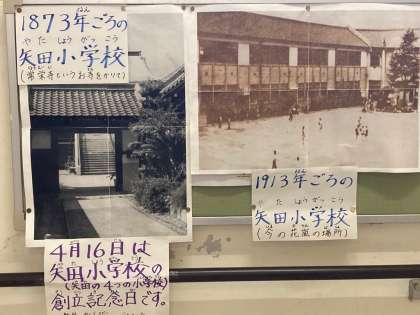 1873年ごろの
やたしょうがっこう
矢田小学校
(常栄寺というお寺をかりて)
1913年ごろの
やたしょうがっこう
矢田小学校
(今の の場所)
4月16日は
矢田小学校の
(矢田の4つの小学校)
創立記念日です。